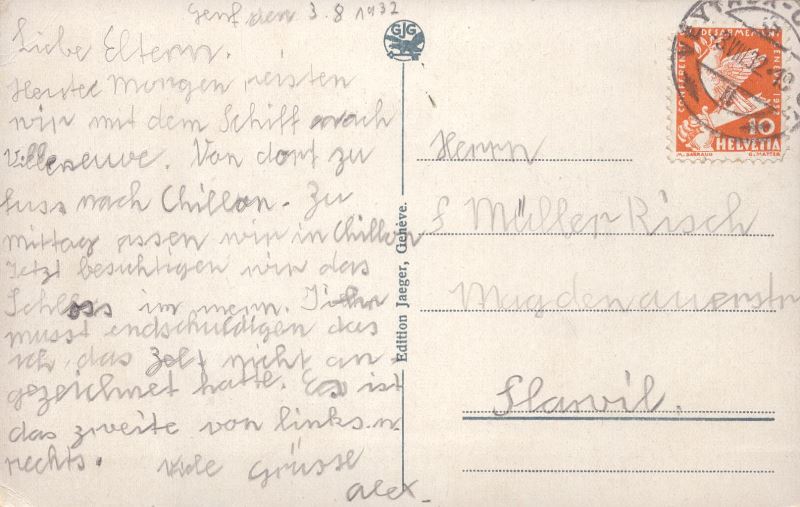 Genf den 3.8 1932
Liebe Eltern.
Heute Morgen reisten
wir mit dem Schiff nach
Villeneuve. Von dort zu
fuss nach Chillon. Zu
mittag essen wir in Chillon
Jetzt besichtigen wir das
Schloss im
musst endschuldigen das
ich das Zelt nicht an-
gezeichnet hatte. Es ist
das zweite von links n.
rechts. Viele Grüsse
Alex.
GJG
Edition Jaeger, Genève.
VEYTAUX-C
VIII 32
CONFERENCE DESARMEMENT GENEVE 1932
10
HELVETIA
M. BARRAUD
Herrn
f Müller Risch
Magdenauerstr
Flawil.